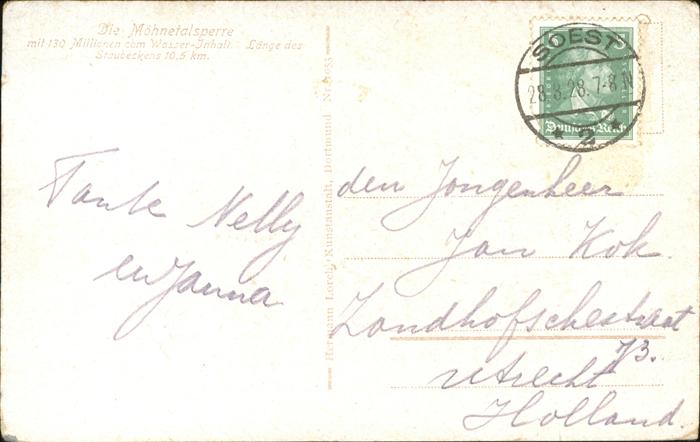 Die Möhnetalsperre
mit 130 Millionen cbm Wasser-Inhalt. Länge des
Staubeckens 10,5 km.
Tante Nelly
en Janna
Hermann Lorch, Kunstanstalt, Dortmund
SOEST
28.8.28.7-8 N
* 2 *
5
Deutsches Reich
den Jongenheer
Jan Kok.
Zandhofschestraat
73.
Utrecht
Holland.